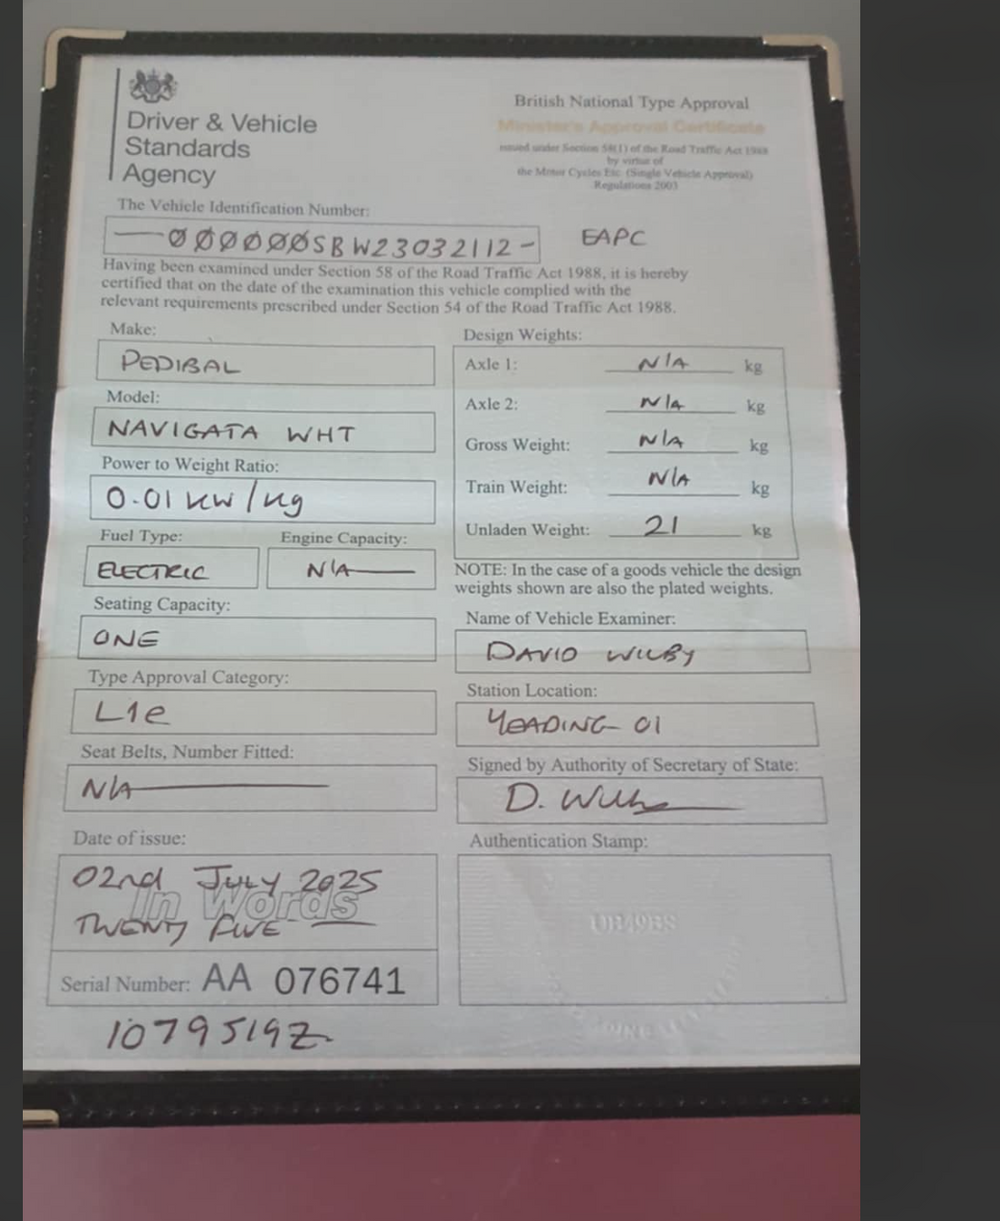 Driver & Vehicle
Standards
Agency
British National Type Approval
Minister's Approval Certificate
issued under Section 58(1) of the Road Traffic Act 1988
by virtue of
the Motor Cycles Etc. (Single Vehicle Approval)
Regulations 2003
The Vehicle Identification Number:
—000000SBW23032112-
EAPC
Having been examined under Section 58 of the Road Traffic Act 1988, it is hereby
certified that on the date of the examination this vehicle complied with the
relevant requirements prescribed under Section 54 of the Road Traffic Act 1988.
Make:
PEDIBAL
Model:
NAVIGATA WHT
Power to Weight Ratio:
0.01 KW/Kg
Fuel Type:
ELECTRIC
Engine Capacity:
N/A
Seating Capacity:
ONE
Type Approval Category:
L1e
Seat Belts, Number Fitted:
N/A
Date of issue:
02nd July 2025
In Words
TWENTY FIVE
Serial Number: AA 076741
1079519Z
Design Weights:
Axle 1: N/A kg
Axle 2: N/A kg
Gross Weight: N/A kg
Train Weight: N/A kg
Unladen Weight: 21 kg
NOTE: In the case of a goods vehicle the design
weights shown are also the plated weights.
Name of Vehicle Examiner:
DAVID WILBY
Station Location:
YEADING 01
Signed by Authority of Secretary of State:
D. Wilby
Authentication Stamp: